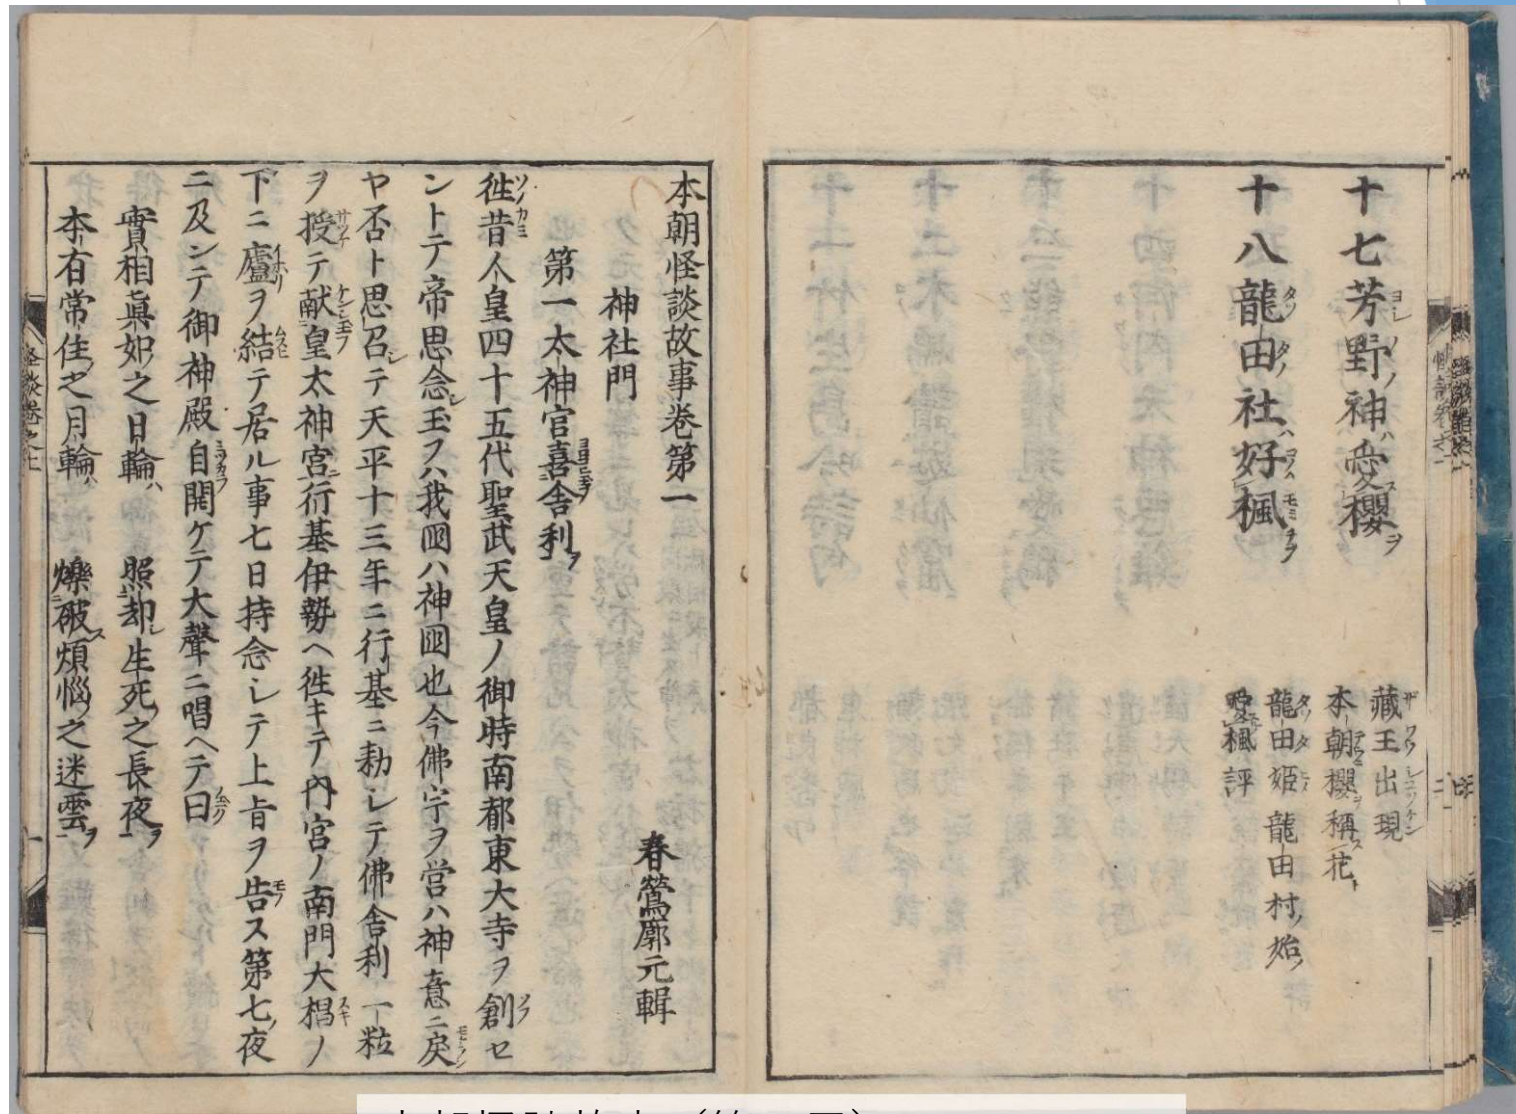 十七芳野神愛櫻ヲ
藏王出現
本朝櫻稱花
十八龍田社好楓
龍田姫 龍田村ノ始
楓評
本朝怪談故事卷第一
春鶯廓元輯
神社門
第一太神宮喜舎利ヲ
徃昔人皇四十五代聖武天皇ノ御時南都東大寺ヲ創セ
ントテ帝思念シ玉フハ我國ハ神國也今佛宇ヲ営ハ神意ニ戻
ヤ否ト思召シテ天平十三年ニ行基ニ勅シテ佛舎利一粒
ヲ授テ献皇太神宮ニ行基伊勢ヘ徃キテ内宮ノ南門大椙ノ
下ニ廬ヲ結テ居ル事七日持念シテ上旨ヲ告ス第七夜
ニ及ンテ御神殿自開ケテ大聲ニ唱ヘテ曰
實相眞如之日輪ハ 照却シ生死之長夜ヲ
本有常住之月輪ハ 爍破ス煩悩之迷雲ヲ